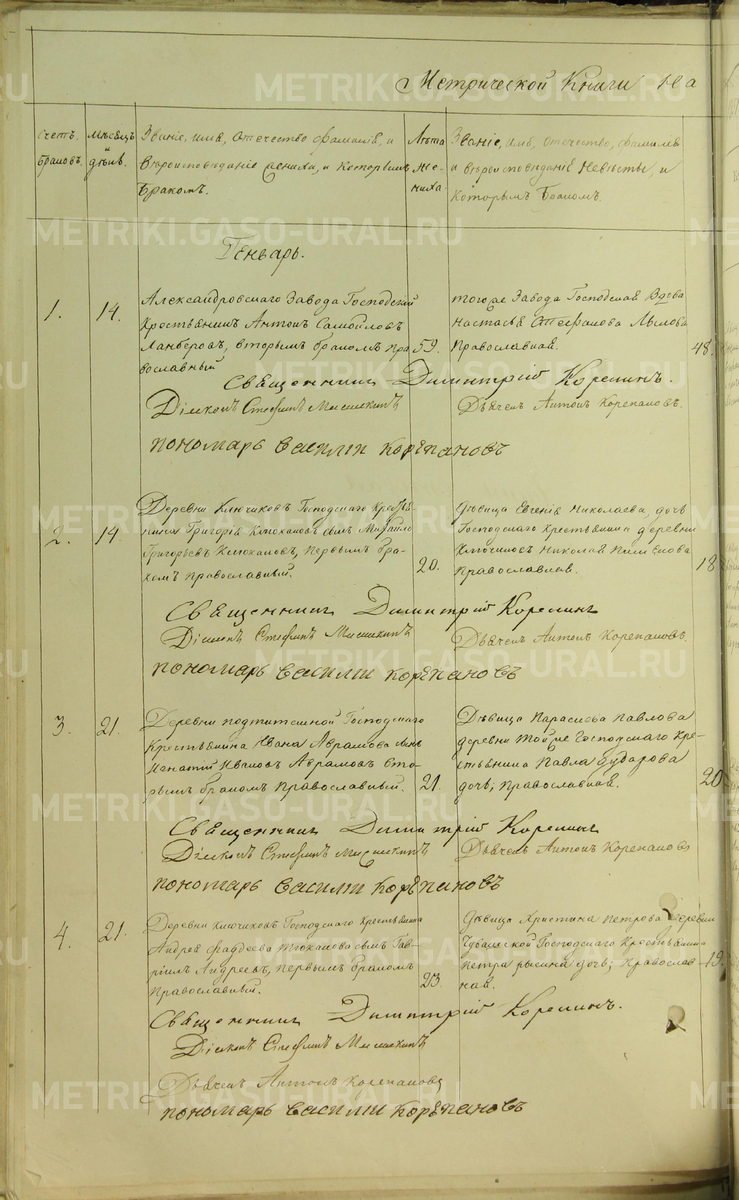 Метрической Книги На
Счетъ
браковъ.
Мѣсяцъ
и
дни.
Званіе, имя, отечество фамилія, и
вѣроисповѣданіе жениха, и которымъ
бракомъ.
Лѣта
же-
ниха.
Званіе, имя, отечество, фамилія
и вѣроисповѣданіе Невѣсты, и
которымъ бракомъ.
Генварь.
1.
14.
Александровскаго Завода Господскій
крестьянинъ Антонъ Самойловъ
вторымъ бракомъ пра
вославный
59.
тогоже Завода Господская Вдова
Настасья
Православная.
48.
Священникъ Димитрій Корепинъ.
Діаконъ Стефанъ Мишкинъ
Дьячекъ Антонъ Корепановъ.
пономарь Василій Корѣпановъ
2.
14
Деревни Ключиковъ Господскаго Крестья
нина Григорія Клюканова сынъ Михайло
Григорьевъ Клюкановъ, первымъ бра-
комъ православный.
20.
Дѣвица Евгенія Николаева, дочь
Господскаго крестьянина деревни
Ключиковъ Николая
Православная.
18
Священникъ Димитрій Корепинъ
Діаконъ Стефанъ Мишкинъ
Дьячекъ Антонъ Корепановъ.
пономарь Василій Корѣпановъ
3.
21.
Деревни Господскаго
Крестьянина Ивана Аврамова сынъ
Игнатій Ивановъ Аврамовъ вто-
рымъ бракомъ Православный.
21.
Дѣвица Парасковья Павлова
деревни тойже Господскаго кре-
стьянина Павла Дударова
дочь, Православная.
20
Священникъ Димитрій Корепинъ
Діаконъ Стефанъ Мишкинъ
Дьячекъ Антонъ Корепановъ
пономарь Василій Корѣпановъ
4.
21.
Деревни Ключиковъ Господскаго Крестьянина
Андрея Фаддеева Тюканова сынъ Гав-
ріилъ Андреевъ, первымъ бракомъ
Православный.
23.
Дѣвица Христина Петрова Деревни
Господскаго Крестьянина
петра рысина дочь; Православ
ная.
19.
Священникъ Димитрій Корепинъ.
Діаконъ Стефанъ Мишкинъ
Дьячекъ Антонъ Корепановъ
пономарь Василій Корѣпановъ
METRIKI.GASO-URAL.RU